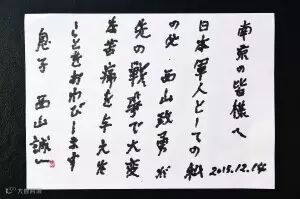 南京の皆様へ
日本軍人としての私
の父 西山政勇が
先の戦争で大変
な苦痛を与えた
ことをおわびします
息子 西山誠一
2015.12.14